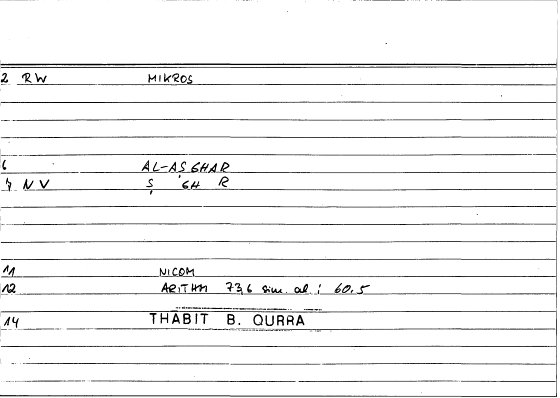 2 RW MIKROS
6 AL-ASGHAR
7 NV Ṣ ĠH R
11 NICOM
12 ARITHM 73,6 sim. al.: 60.5
14 THĀBIT B. QURRA